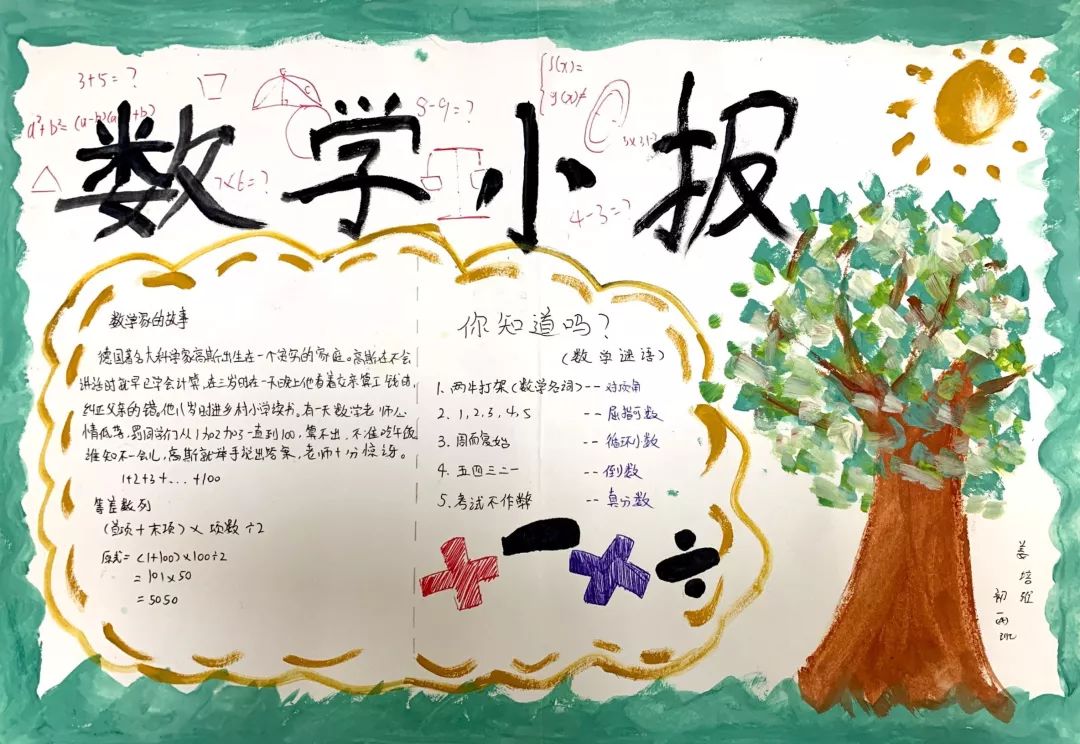 3+5=?
a²+b²=(a-b)(a+b)
7×6=?
9-9=?
f(x)=
g(x)≠
4-3=?
数学小报
数学家的故事
德国著名大科学家高斯出生在一个贫穷的家庭。高斯还不会
讲话时就早已学会计算,在三岁时在一天晚上他看着父亲算工钱时,
纠正父亲的错。他八岁时进乡村小学读书。有一天数学老师心
情低落,罚同学们从1加2加3一直到100,算不出,不准吃午饭
谁知不一会儿,高斯就举手说出答案,老师十分惊讶。
1+2+3+...+100
等差数列
(首项+末项)×项数÷2
原式=(1+100)×100÷2
=101×50
=5050
你知道吗?
(数学谜语)
1. 两牛打架(数学名词)--对顶角
2. 1,2,3,4,5 --屈指可数
3. 周而复始 --循环小数
4. 五四三二一 --倒数
5. 考试不作弊 --真分数
+ - × ÷
姜培
初一班